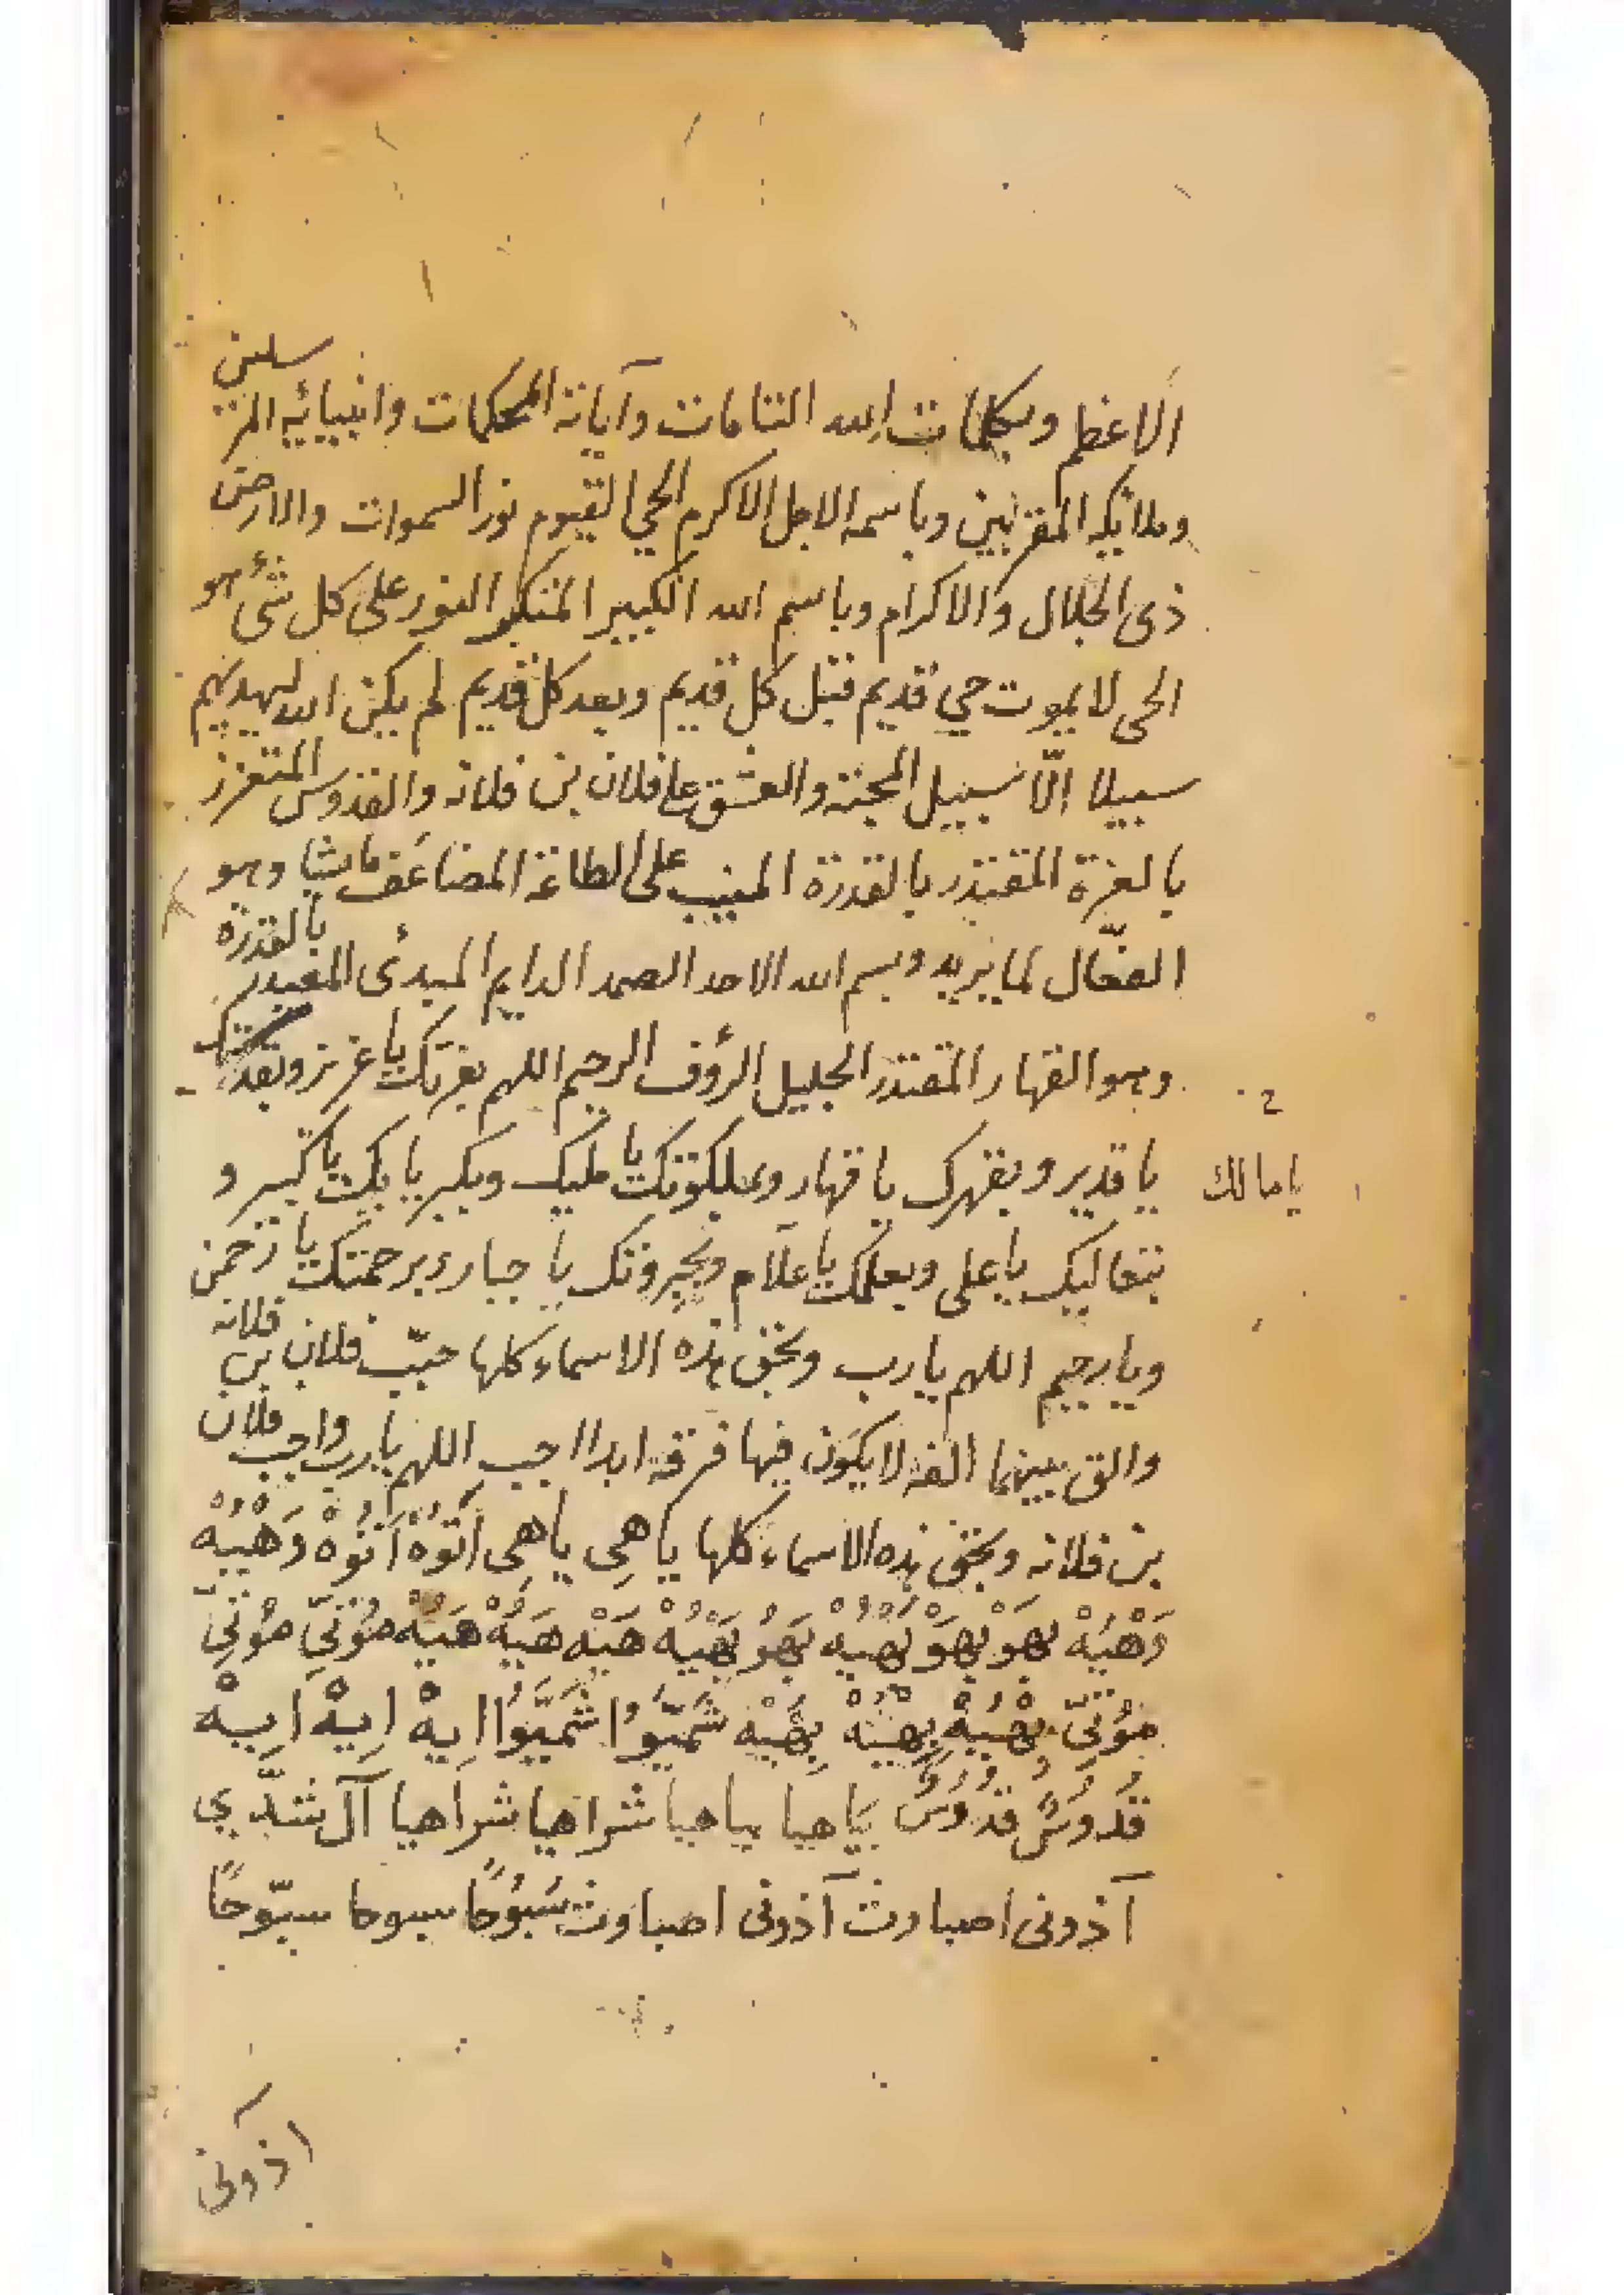 الاعظم وبكلمات الله التامات وآياته المحكمات وانبيائه المرسلين
وملائكه المقربين وباسمه الاجل الاكرم الحي القيوم نور السموات والارض
ذى الجلال والاكرام وباسم الله الكبير المتكبر النور على كل شئ هو
الحى لا يموت حي قديم قبل كل قديم وبعد كل قديم لم يكن الله ليهديهم
سبيلا الّا سبيل المحبة والعشق على فلان بن فلانه والقدوس المتعزز
بالعزة المقتدر بالقدرة المنيب على الطاعة المضاعف مايشا وهو
الفعّال لما يريد وبسم الله الاحد الصمد الدايم المبدئ المعيد بالقدرة
وهو القهار المقتدر الجليل الرؤف الرحيم اللهم بعزتك يا عزيز وبقدرتك
يا قدير وبقهرك يا قهار وبملكوتك يا مليك وبكبريايك يا كبير و
يا مالك
بتعاليك يا على وبعلمك يا علّام وبجبروتك يا جبار وبرحمتك يا رحمن
ويا رحيم اللهم يا رب وبحق هذه الاسماء كلها حبّب فلان بن فلانه
والق بينهما الفة لا يكون فيها فرقة ابدا اجب اللهم يا رب واجب فلان
بن فلانه وبحق هذه الاسماء كلها ياهِى ياهِى اَنُوْهْ اَنُوْهْ وَهْيُهْ
وَهْيُهْ بهَوْ بهَوْ بَهْيُهْ بَهُوْ بَهْيُهْ هَيْه هَيُهْ هَيُهْ مُوْنىّ مُوْنىّ
مُوْنىّ بِهْيُهْ بِهْيُهْ بِهْيْهْ شَمَيّوُا شَمَيَّوُا اِيهْ اِيهْ اِيهْ
قدُوسٌ قدُوسٌ يَاهيا ياهيا شراهيا شراهيا آل شدّي
آذونى اصباوث آذونى اصباوث سُبّوُحًا سبوحا سبّوحًا
اذونى